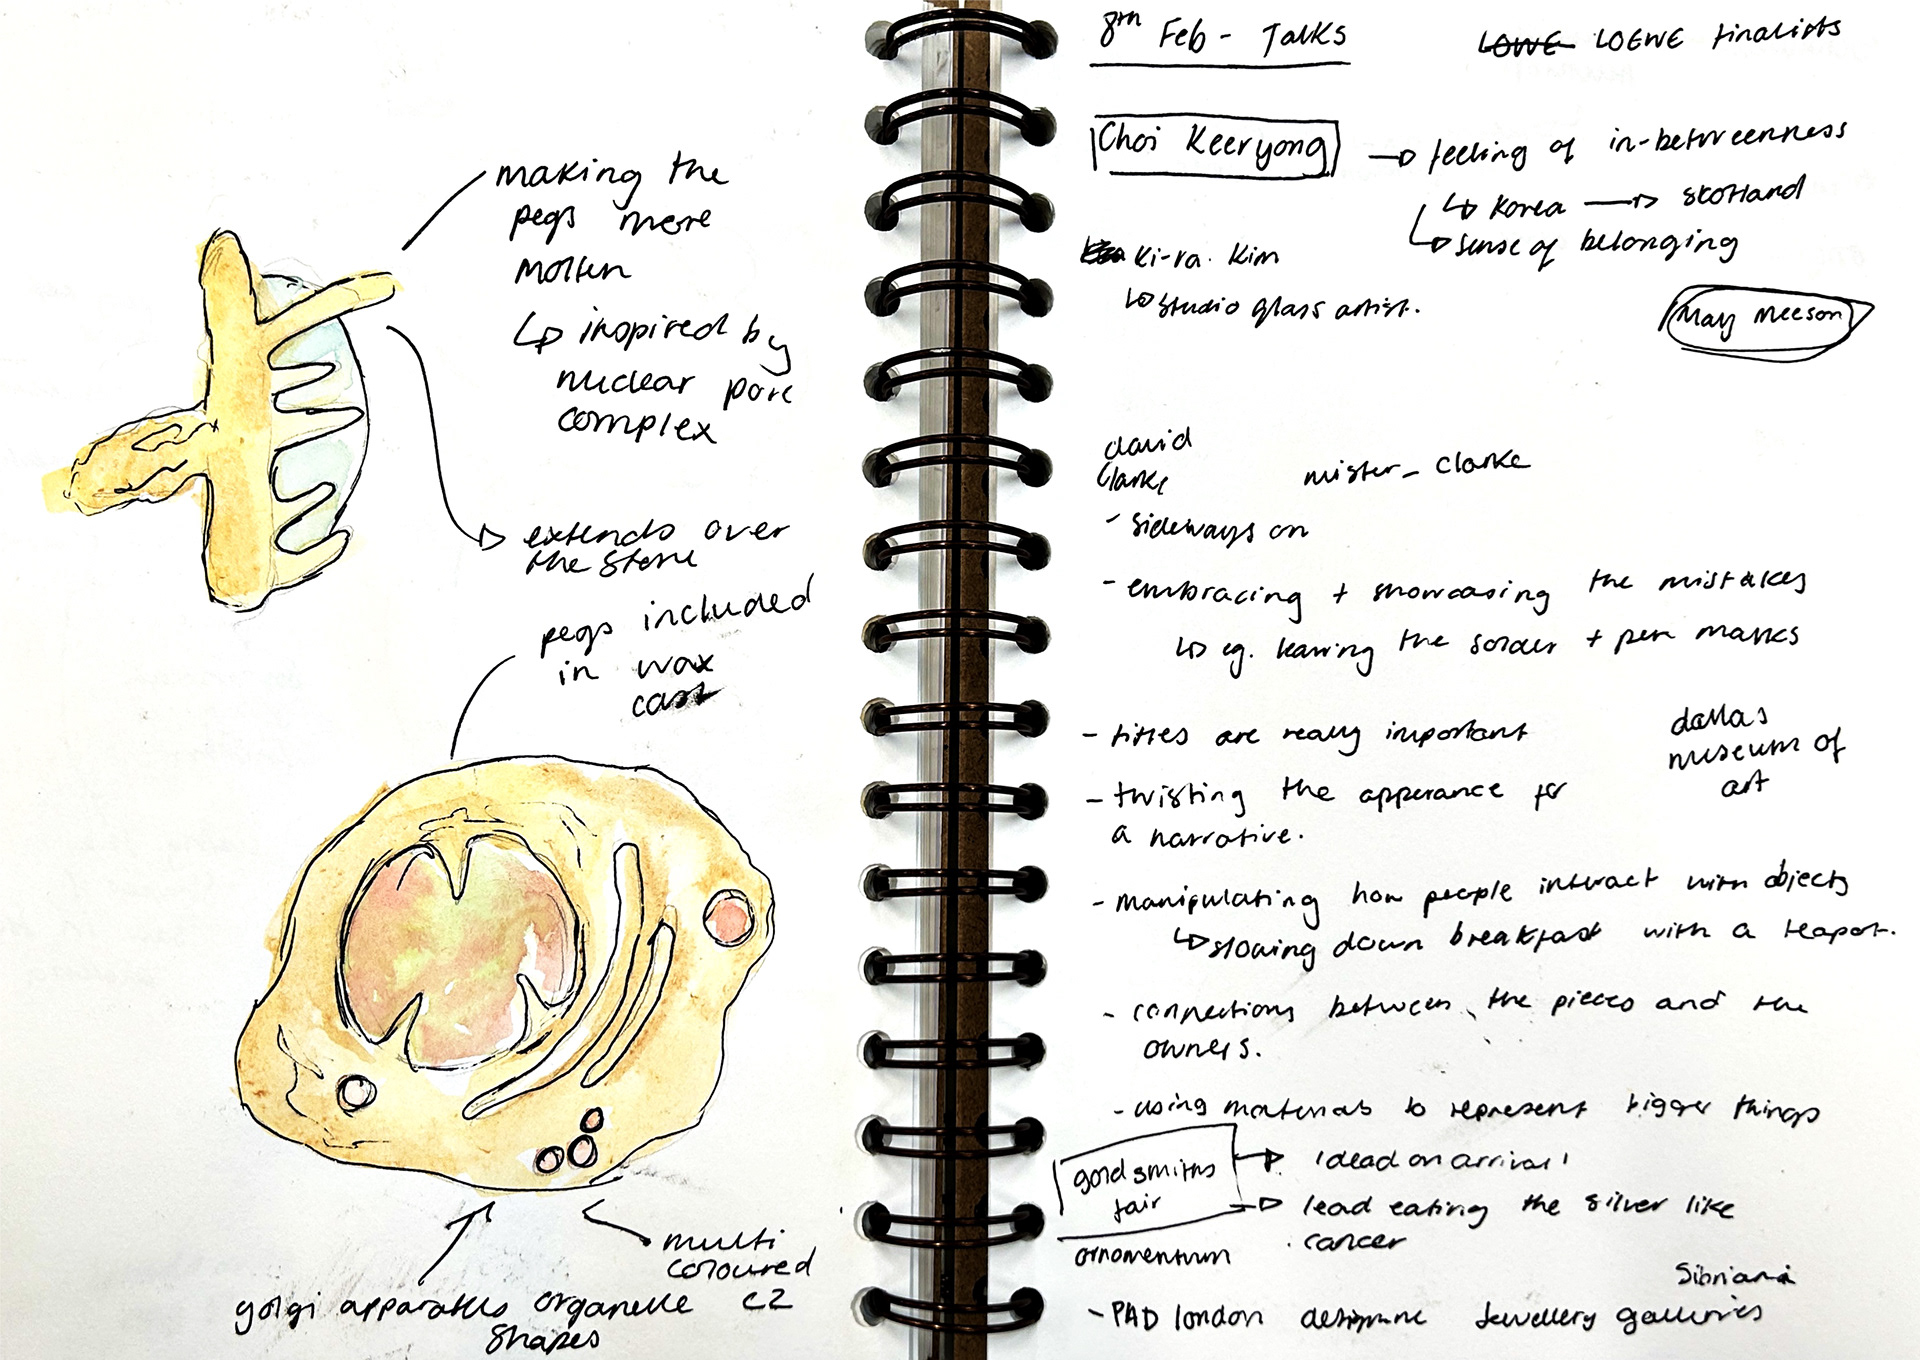 making the
pegs more
molten
↳ inspired by
nuclear pore
complex
extends over
the stone
pegs included
in wax
cast
multi
coloured
golgi apparatus organelle
shapes
8th Feb - Talks
LOWE LOEWE finalists
Choi Keeryong → feeling of in-betweenness
↳ Korea → Scotland
↳ sense of belonging
Ki-ra. Kim
↳ studio glass artist.
May Meeson
david
Clarke
mister_clarke
- sideways on
- embracing + showcasing the mistakes
↳ eg. leaving the solder + pen marks
- titles are really important
dallas
museum of
art
- twisting the apperance for
a narrative.
- manipulating how people interact with objects
↳ slowing down breakfast with a teapot.
- connections between the pieces and the
owners.
- using materials to represent bigger things
goldsmiths
fair
→ 'dead on arrival'
→ lead eating the silver like
cancer
ornomentum
- PAD london jewellery galleries